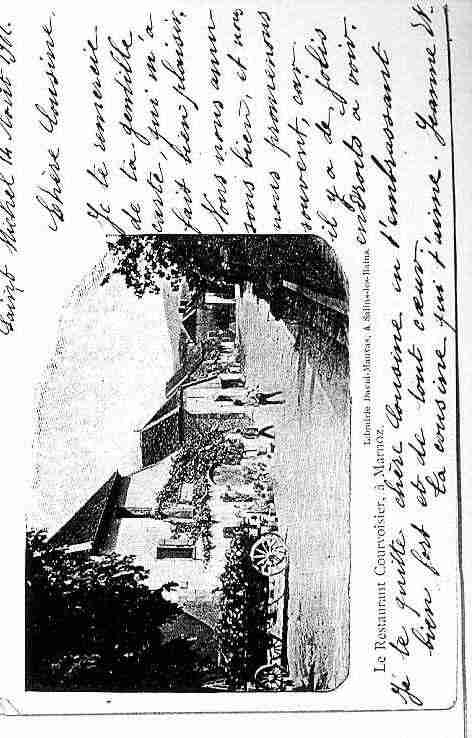 Saint Michel le 14 Août 1911.
Chère Cousine.
Je te remercie
de ta gentille
carte, qui m'a
fait bien plaisir.
Nous nous amu
sons bien, et nous
nous promenons
souvent, car
il y a de jolis
endroits à voir.
Le Restaurant Courvoisier, à Marnoz.
Librairie David-Mauvas, à Salins-les-Bains.
Je te quitte chère Cousine en t'embrassant
bien fort et de tout cœur.
Ta cousine qui t'aime. Jeanne